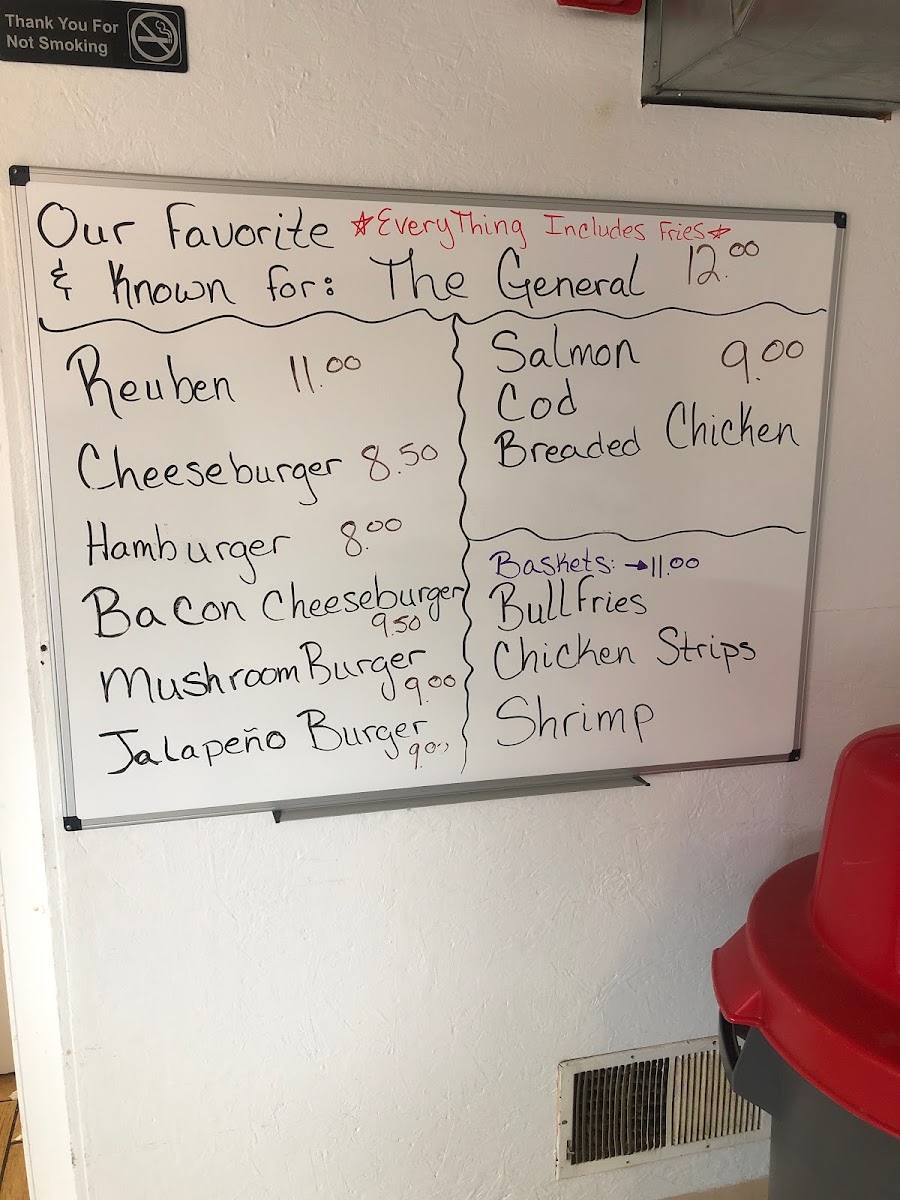 Thank You For
Not Smoking
Our Favorite *Everything Includes Fries*
& Known for: The General 12.00
Reuben 11.00
Cheeseburger 8.50
Hamburger 8.00
Bacon Cheeseburger
9.50
Mushroom Burger
9.00
Jalapeño Burger
9.00
Salmon 9.00
Cod
Breaded Chicken
Baskets: →11.00
Bull Fries
Chicken Strips
Shrimp